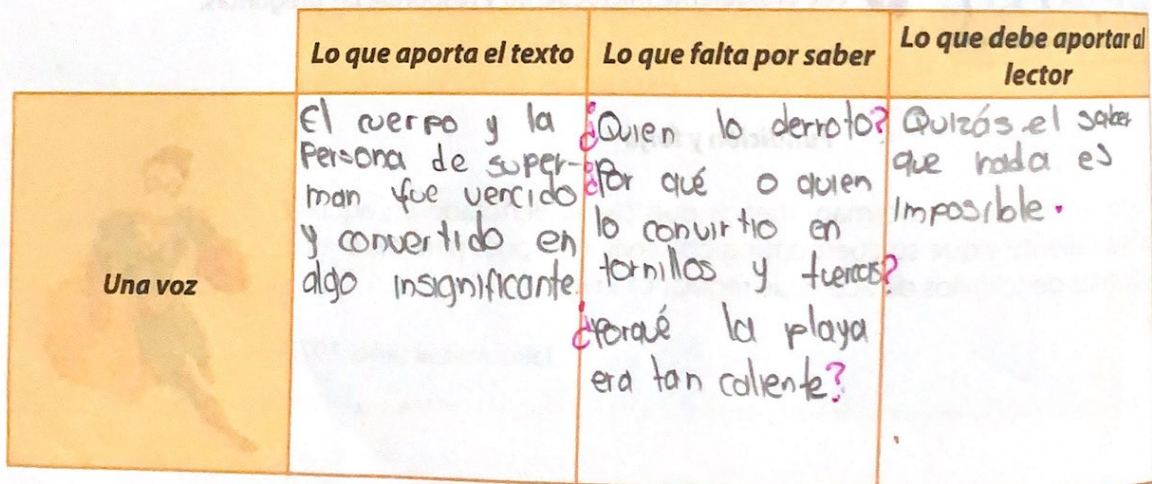 Lo que aporta el texto
Lo que falta por saber
Lo que debe aportar al
lector
Una voz
El cuerpo y la
persona de super-
man fue vencido
y convertido en
algo insignificante.
¿Quien lo derroto?
¿Por qué o quien
lo convirtio en
tornillos y tuercas?
¿Porqué la playa
era tan caliente?
Quizás el saber
que nada es
imposible.